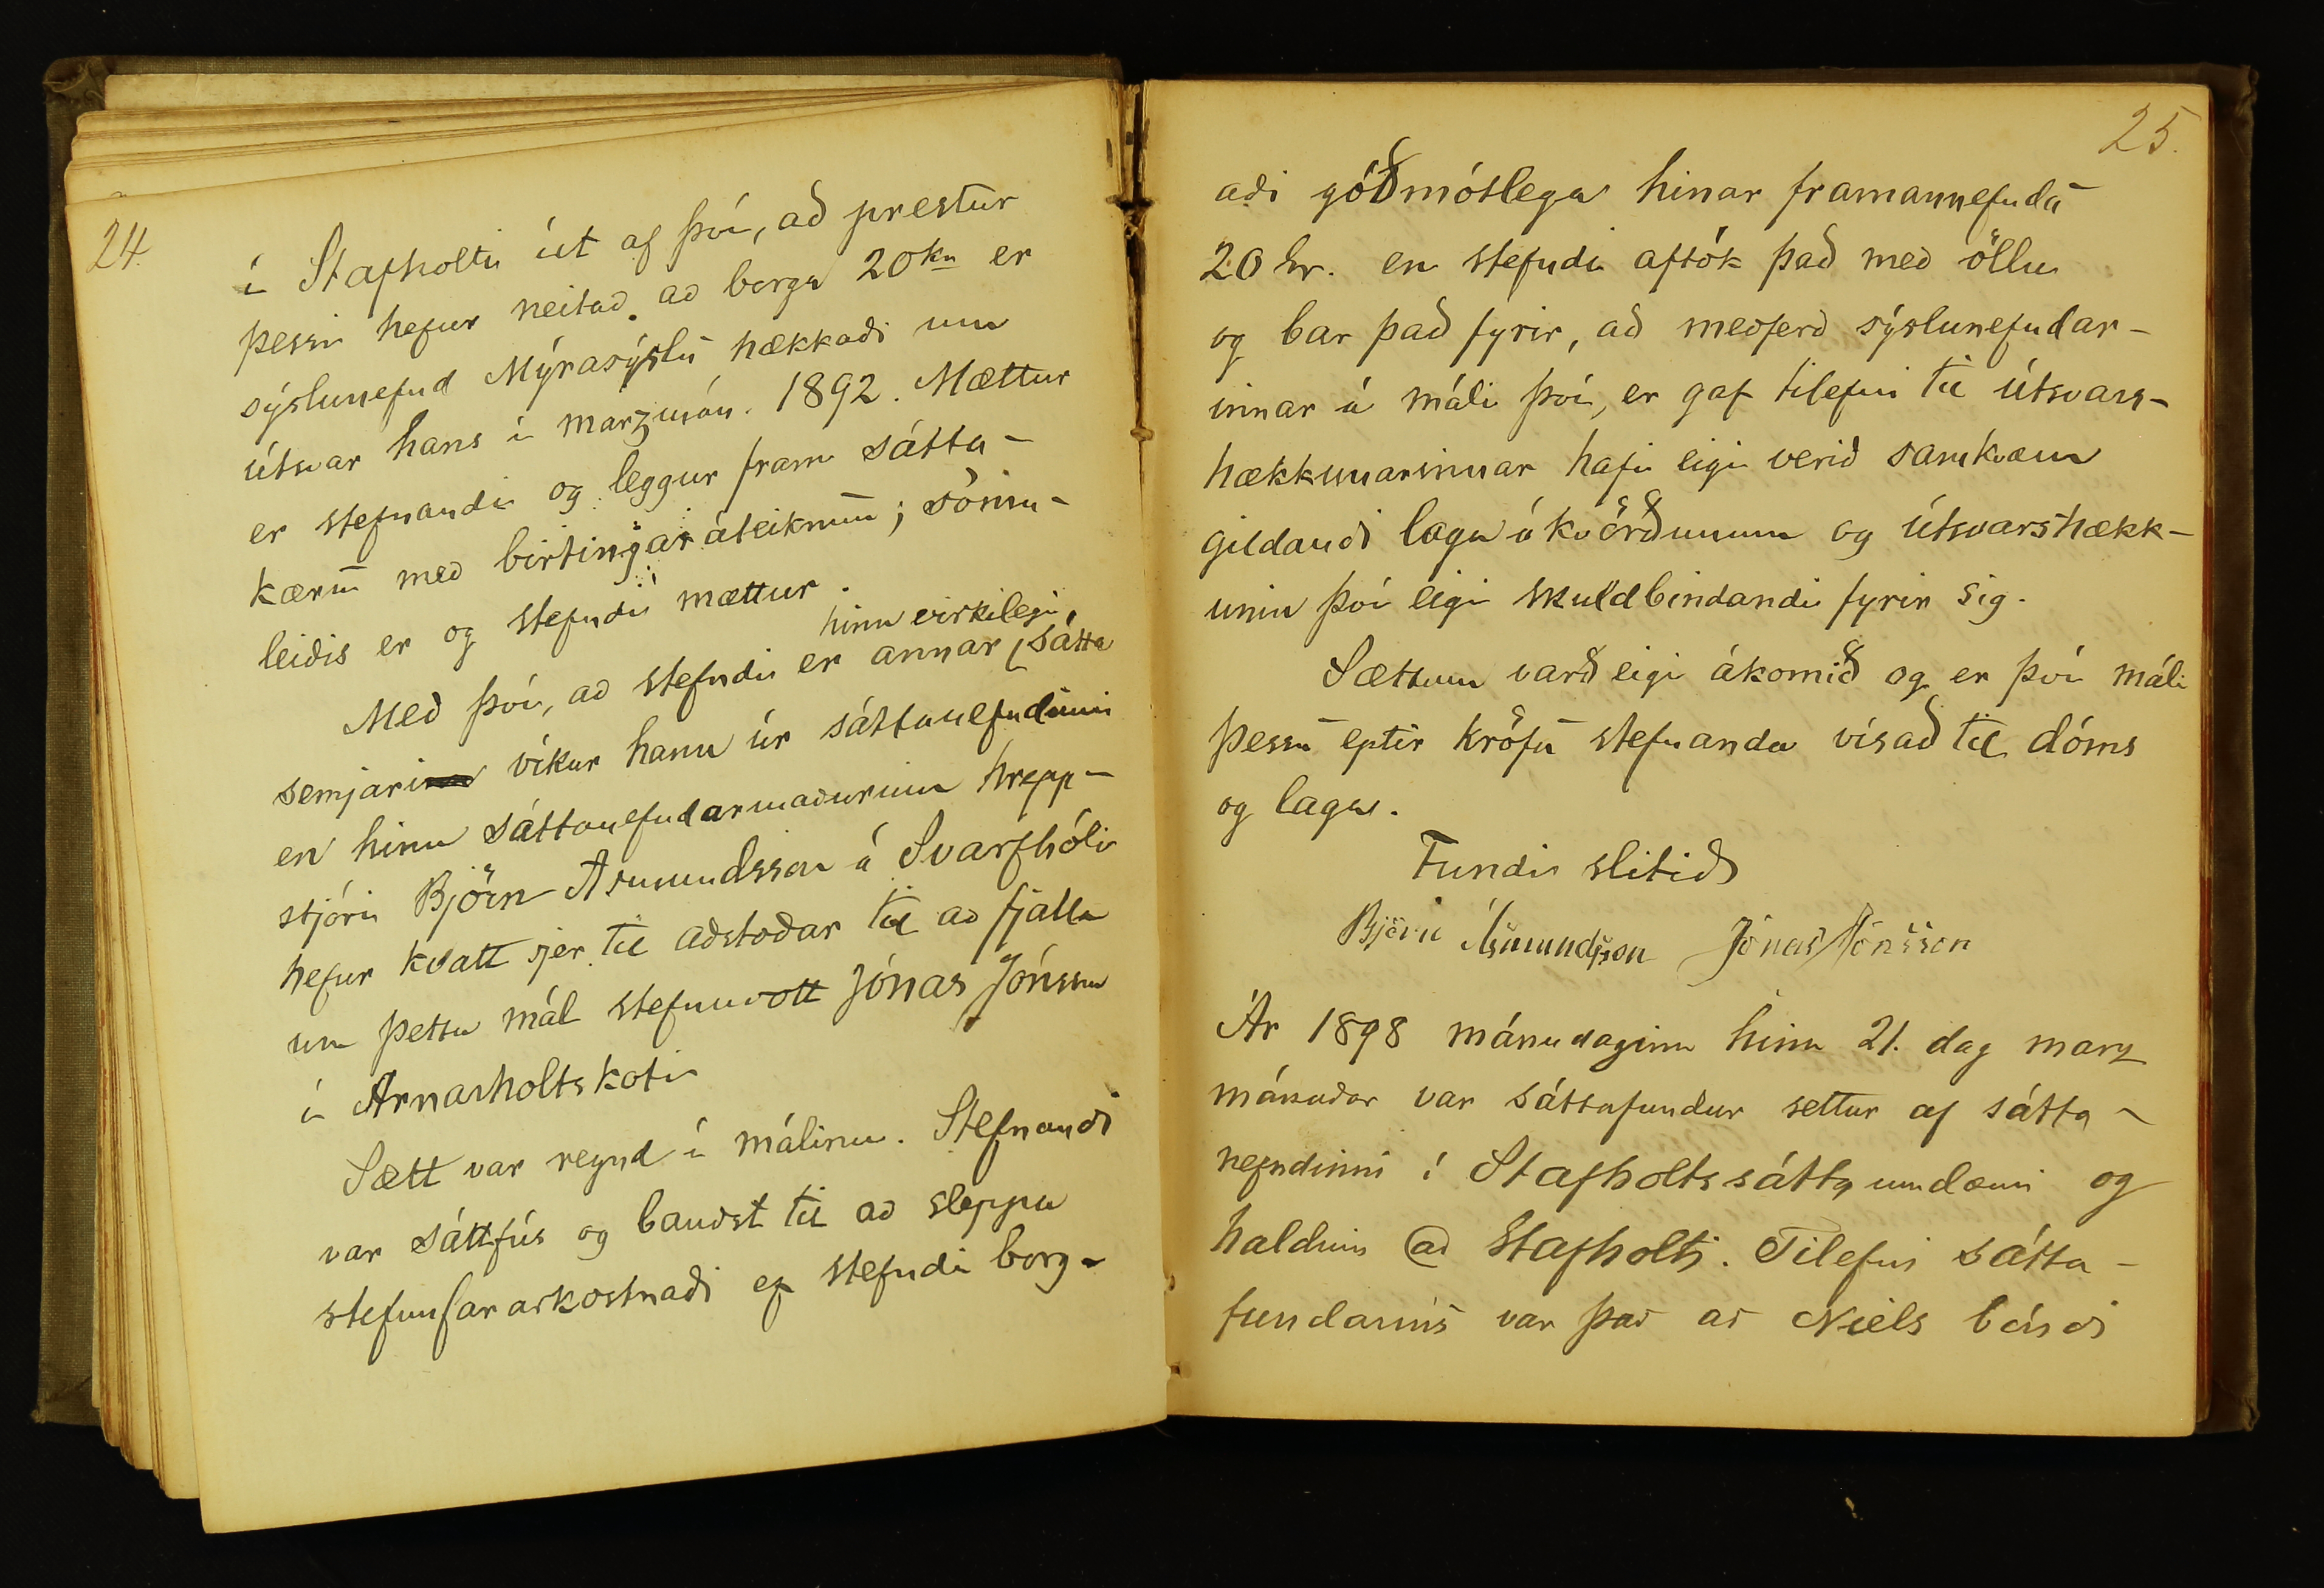 24.
í Stafholti út af því, að prestur
þessi hefur neitað að borga 20 kr er
sýslunefnd Mýrasýslu hækkaði um
útsvar hans í marzmán. 1892. Mættur
er stefnandi og leggur fram sátta-
kæru með birtingar áteiknun; sömu-
leiðis er og stefndi mættur.
Með því, að stefndi er annar hinn virkilegi sátta
semjari víkur hann úr sáttanefndinni
en hinn sáttanefndarmaðurinn hrepp-
stjóri Björn Asmundsson á Svarfhóli
hefur kvatt sjer til aðstoðar til að fjalla
um þetta mál stefnuvott Jónas Jónsson
í Arnarholtskoti
Sætt var reynd í málinu. Stefnandi
var sáttfús og bauðst til að sleppa
stefnufararkostnaði ef stefndi borg-
25.
aði góðmótlega hinar framannefndu
20 kr. en stefndi aftók það með öllu
og bar það fyrir, að meðferð sýslunefndar-
innar á máli því, er gaf tilefni til útsvars-
hækkunarinnar hafi eigi verið samkvæm
gildandi laga ákvörðunum og útsvarshækk-
unin því eigi skuldbindandi fyrir sig.
Sættum varð eigi ákomið og er því máli
þessu eptir kröfu stefnanda vísað til dóms
og laga.
Fundi slitið
Björn Ásmundsson Jónas Jónsson
Ár 1898 mánudaginn hinn 21. dag marz
mánaðar var sáttafundur settur af sátta-
nefndinni í Stafholtssáttaumdæmi og
haldinn að Stafholti. Tilefni sátta-
fundarins var það að Niels bóndi